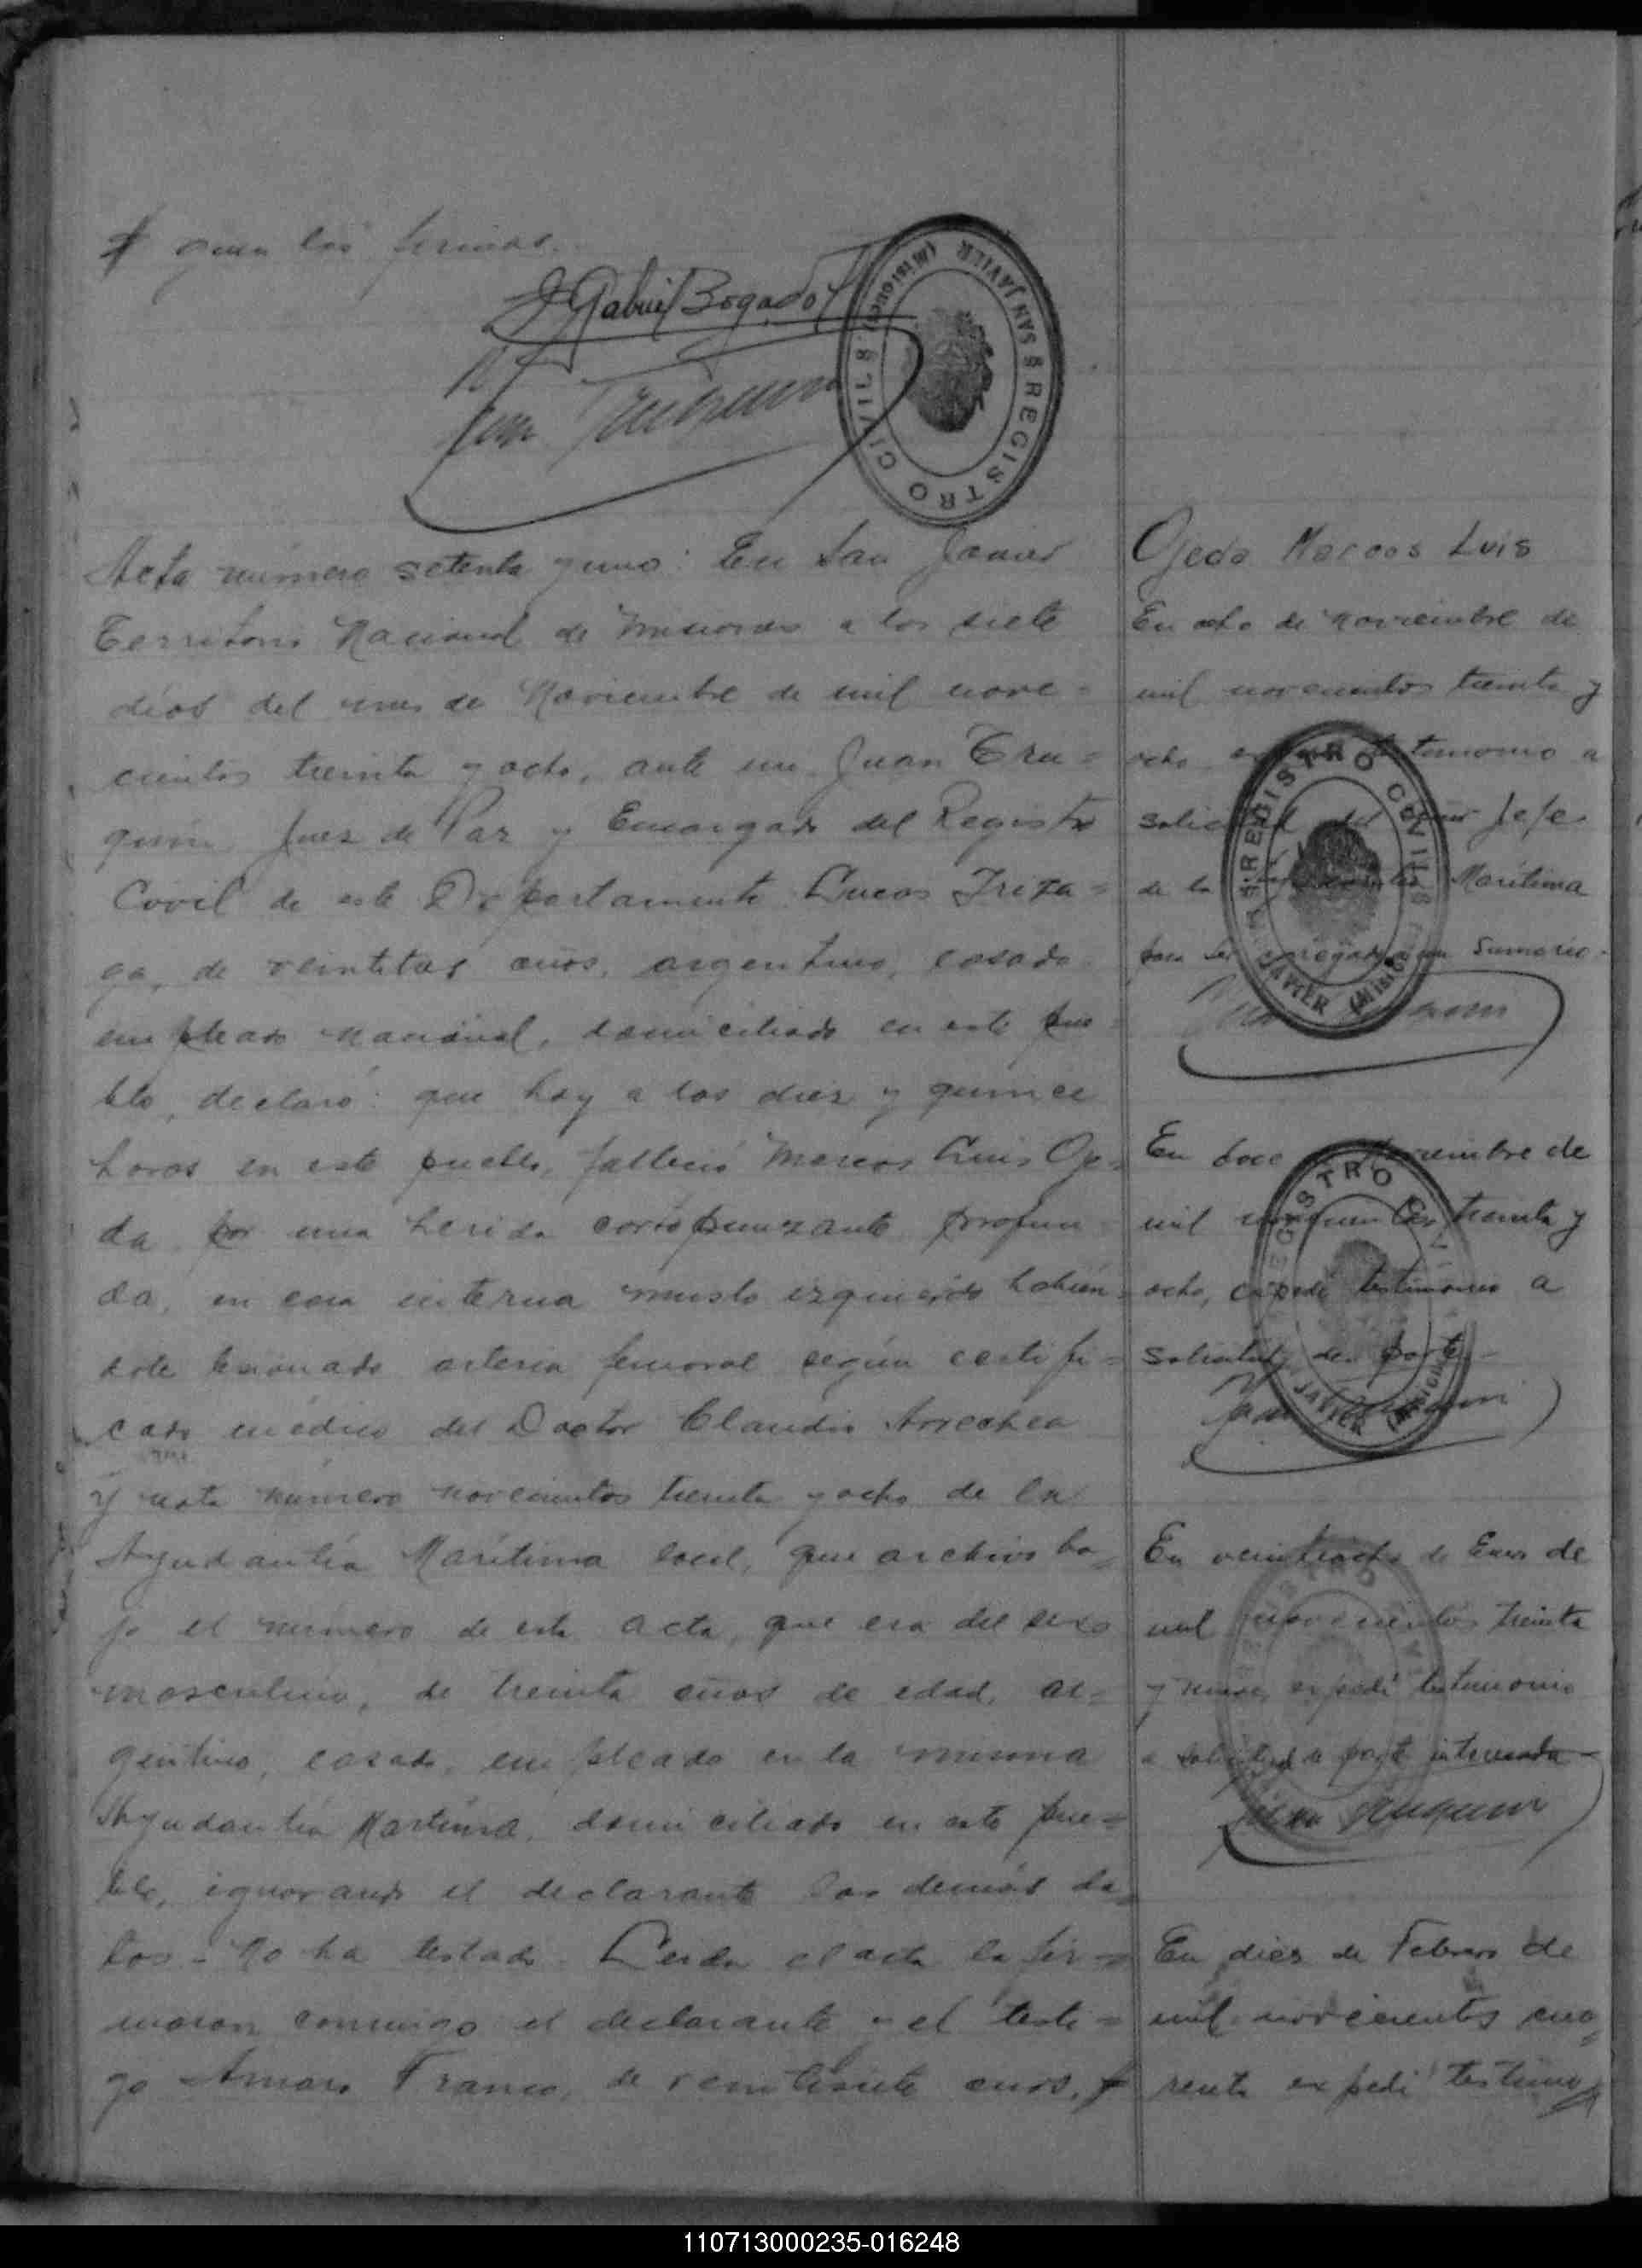 quen las firmas.
J Gabriel Bogado
REGISTRO CIVIL § SAN JAVIER (Misiones) §
Acta número setenta y uno: En San Javier
Territorio Nacional de Misiones a los siete
días del mes de Noviembre de mil nove=
cientos treinta y ocho, ante mi Juan Tru=
quin Juez de Paz y Encargado del Registro
Civil de este Departamento Lucas Iriza=
ga, de años, argentino, casado
empleado nacional, domiciliado en este pue=
blo, declaró: que hoy a las diez y quince
horas en este pueblo, falleció Marcos Luis Oje=
da por una herida cortopunzante profun=
da, en cara interna muslo izquierdo habien=
dole lesionado arteria femoral según certifi=
cado médico del Doctor Claudio Arrechea
y nota número novecientos treinta y ocho de la
Ayudantía Marítima local, que archivo ba=
jo el número de esta acta, que era del sexo
masculino, de treinta años de edad, ar=
gentino, casado, empleado en la misma
Ayudantía Marítima, domiciliado en este pue=
blo, ignorando el declarante los demás da=
tos - No ha testado. Leida el acta la fir=
maron conmigo el declarante y el testi=
go Amaro Franco, de años,
Ojeda Marcos Luis
En ocho de Noviembre de
mil novecientos treinta y
ocho expedí testimonio a
solicitud del señor Jefe
de la Ayudantía Marítima
para ser agregado a un sumario.
REGISTRO CIVIL § SAN JAVIER (Misiones) §
En doce de Noviembre de
mil novecientos treinta y
ocho, expedí testimonio a
solicitud de parte.-
REGISTRO CIVIL JAVIER (Misiones)
En veintiocho de Enero de
mil novecientos treinta
y nueve expedí testimonio
a solicitud de parte interesada
Juan Truquin
En diez de Febrero de
mil novecientos cua=
renta expedí testimo
110713000235-016248